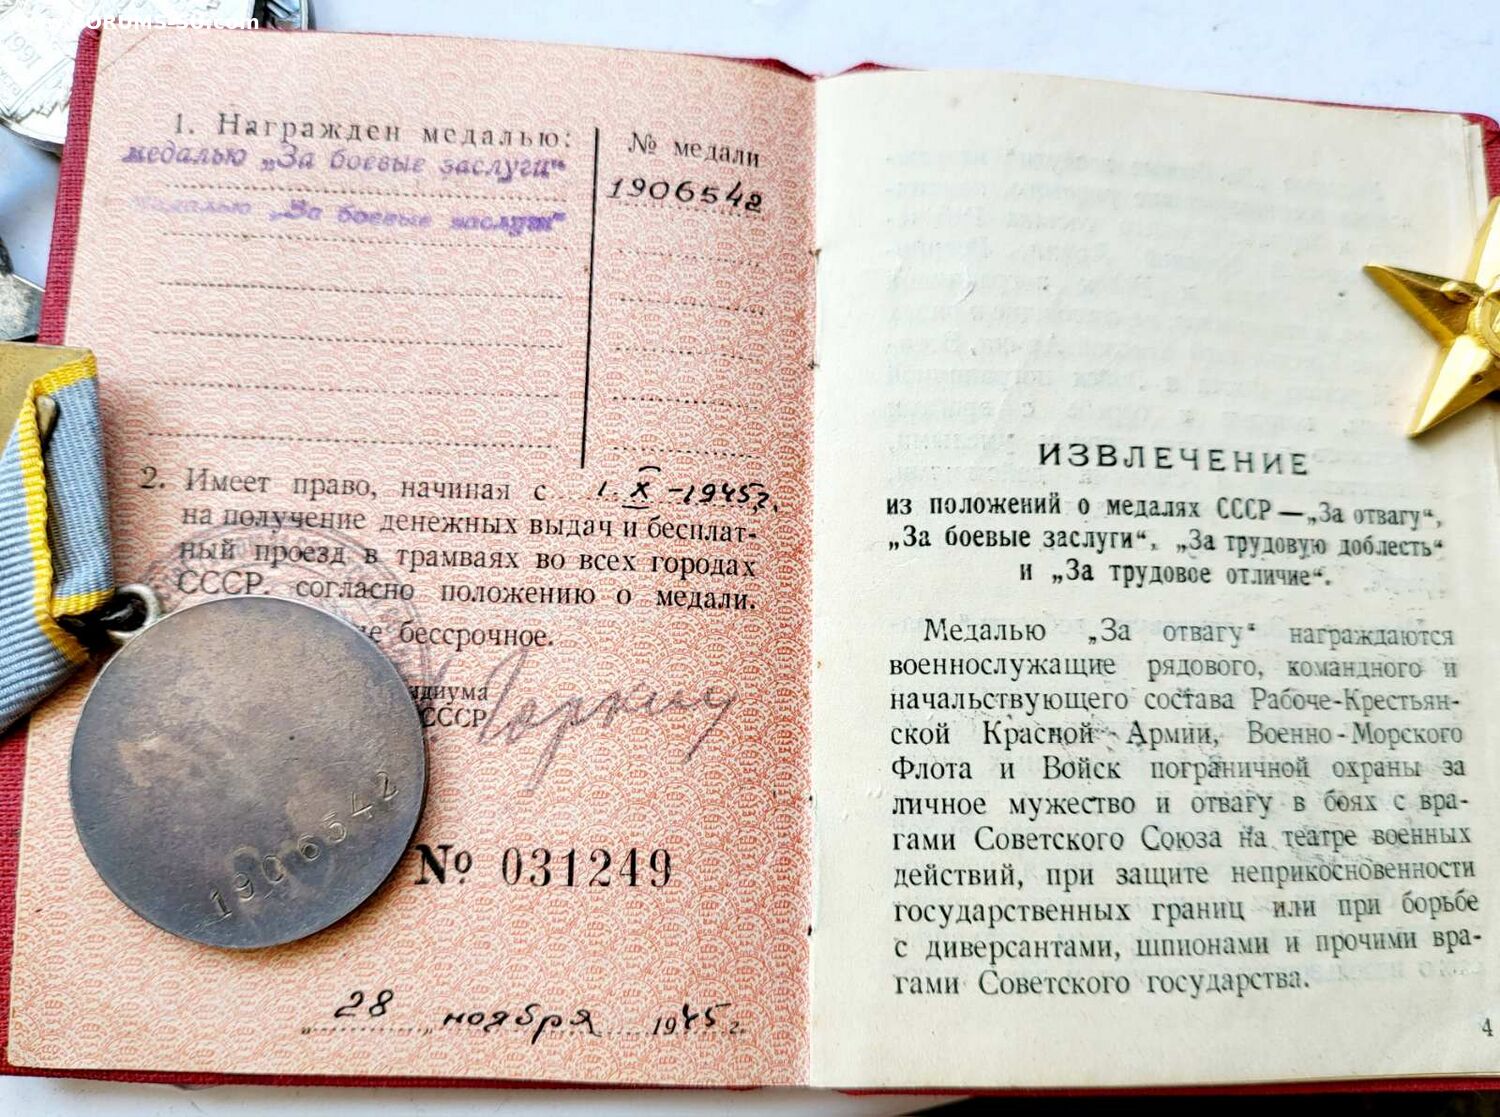 1. Награжден медалью:
№ медали
медалью „За боевые заслуги“
1906542
медалью „За боевые заслуги“
2. Имеет право, начиная с 1 X -1945г.
на получение денежных выдач и бесплат-
ный проезд в трамваях во всех городах
СССР. согласно положению о медали.
бессрочное.
СССР
№ 031249
1906542
„28 „ ноября 1945 г.
ИЗВЛЕЧЕНИЕ
из положений о медалях СССР—„За отвагу“,
„За боевые заслуги“, „За трудовую доблесть“
и „За трудовое отличие“.
Медалью „За отвагу“ награждаются
военнослужащие рядового, командного и
начальствующего состава Рабоче-Крестьян-
ской Красной Армии, Военно-Морского
Флота и Войск пограничной охраны за
личное мужество и отвагу в боях с вра-
гами Советского Союза на театре военных
действий, при защите неприкосновенности
государственных границ или при борьбе
с диверсантами, шпионами и прочими вра-
гами Советского государства.
4